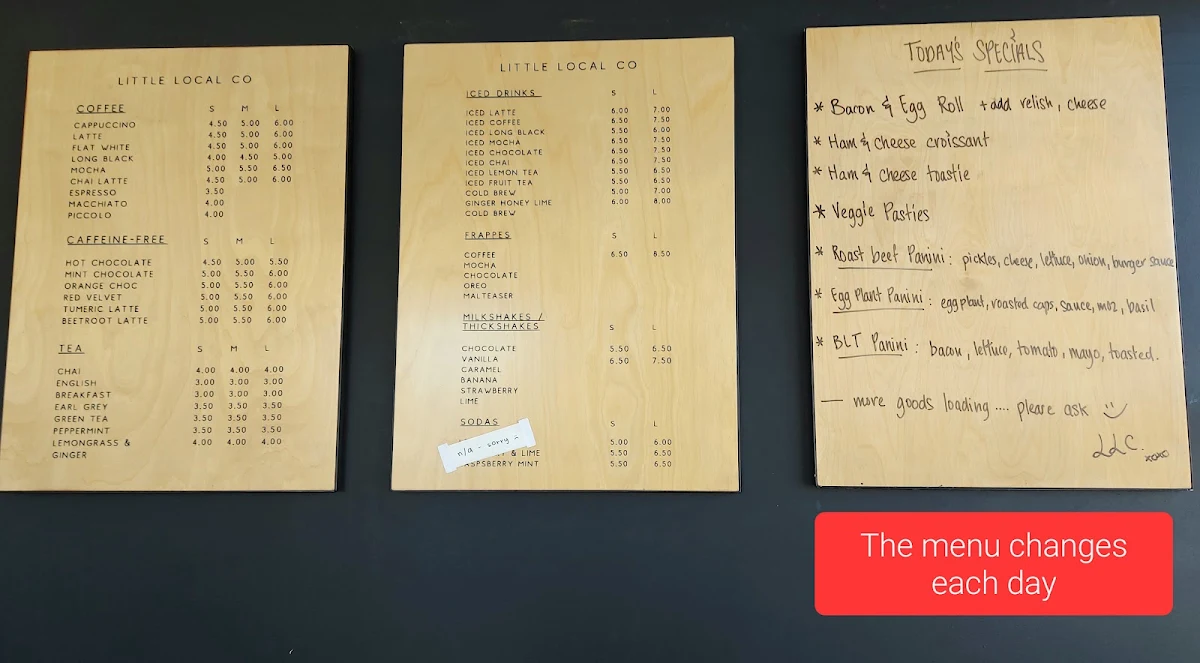 LITTLE LOCAL CO
COFFEE S M L
CAPPUCCINO 4.50 5.00 6.00
LATTE 4.50 5.00 6.00
FLAT WHITE 4.50 5.00 6.00
LONG BLACK 4.00 4.50 5.00
MOCHA 5.00 5.50 6.50
CHAI LATTE 4.50 5.00 6.00
ESPRESSO 3.50
MACCHIATO 4.00
PICCOLO 4.00
CAFFEINE-FREE S M L
HOT CHOCOLATE 4.50 5.00 5.50
MINT CHOCOLATE 5.00 5.50 6.00
ORANGE CHOC 5.00 5.50 6.00
RED VELVET 5.00 5.50 6.00
TUMERIC LATTE 5.00 5.50 6.00
BEETROOT LATTE 5.00 5.50 6.00
TEA S M L
CHAI 4.00 4.00 4.00
ENGLISH 3.00 3.00 3.00
BREAKFAST 3.00 3.00 3.00
EARL GREY 3.50 3.50 3.50
GREEN TEA 3.50 3.50 3.50
PEPPERMINT 3.50 3.50 3.50
LEMONGRASS & 4.00 4.00 4.00
GINGER
LITTLE LOCAL CO
ICED DRINKS S L
ICED LATTE 6.00 7.00
ICED COFFEE 6.50 7.50
ICED LONG BLACK 5.50 6.00
ICED MOCHA 6.50 7.50
ICED CHOCOLATE 6.50 7.50
ICED CHAI 6.50 7.50
ICED LEMON TEA 5.50 6.50
ICED FRUIT TEA 5.50 6.50
COLD BREW 5.00 7.00
GINGER HONEY LIME 6.00 8.00
COLD BREW
FRAPPES S L
COFFEE 6.50 8.50
MOCHA
CHOCOLATE
OREO
MALTEASER
MILKSHAKES /
THICKSHAKES S L
CHOCOLATE 5.50 6.50
VANILLA 6.50 7.50
CARAMEL
BANANA
STRAWBERRY
LIME
SODAS S L
n/a - sorry
5.00 6.00
& LIME 5.50 6.50
ASPSBERRY MINT 5.50 6.50
TODAY'S SPECIALS
* Bacon & Egg Roll +add relish, cheese
* Ham & cheese croissant
* Ham & cheese toastie
* Veggie Pasties
* Roast beef Panini : pickles, cheese, lettuce, onion, burger sauce
* Egg Plant Panini : eggplant, roasted caps, sauce, moz, basil
* BLT Panini : bacon, lettuce, tomato, mayo, toasted.
— more goods loading .... please ask :)
LLC.
xoxo
The menu changes
each day